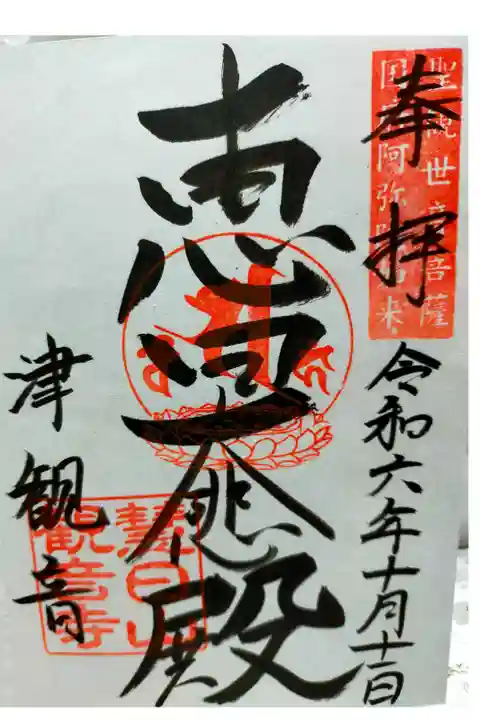 奉拝
聖観世音菩薩
国府阿弥陀如来
令和六年十月十二日
殿
津観音
慧日山
観音寺